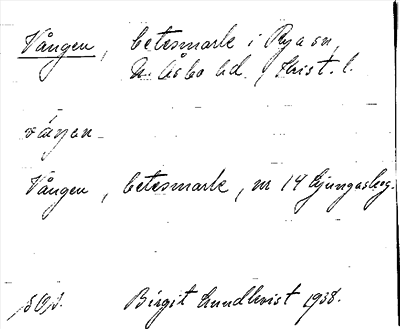 Vången, betesmark i Rya sn,
N. Åsbo hd. Krist. l.
vången
Vången, betesmark, nr 14 Ljungaskog.
Birgit Lundkvist 1938.